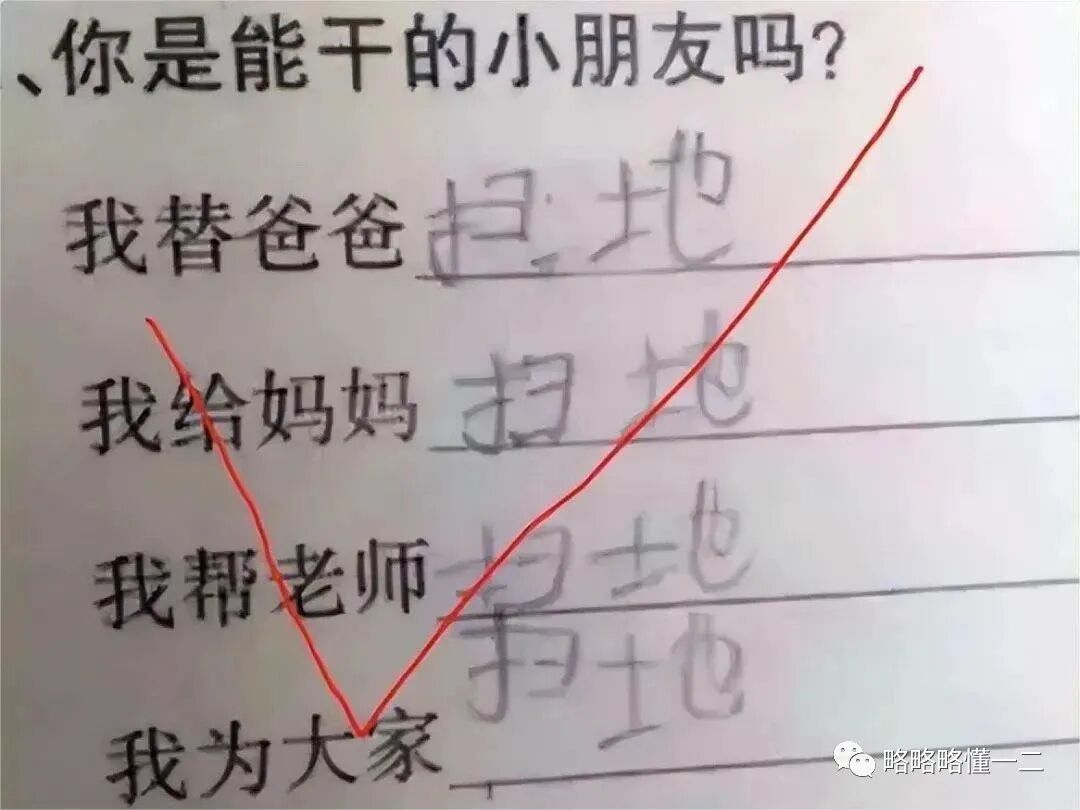 、你是能干的小朋友吗?
我替爸爸扫地
我给妈妈扫地
我帮老师扫地
我为大家扫地
略略略懂一二